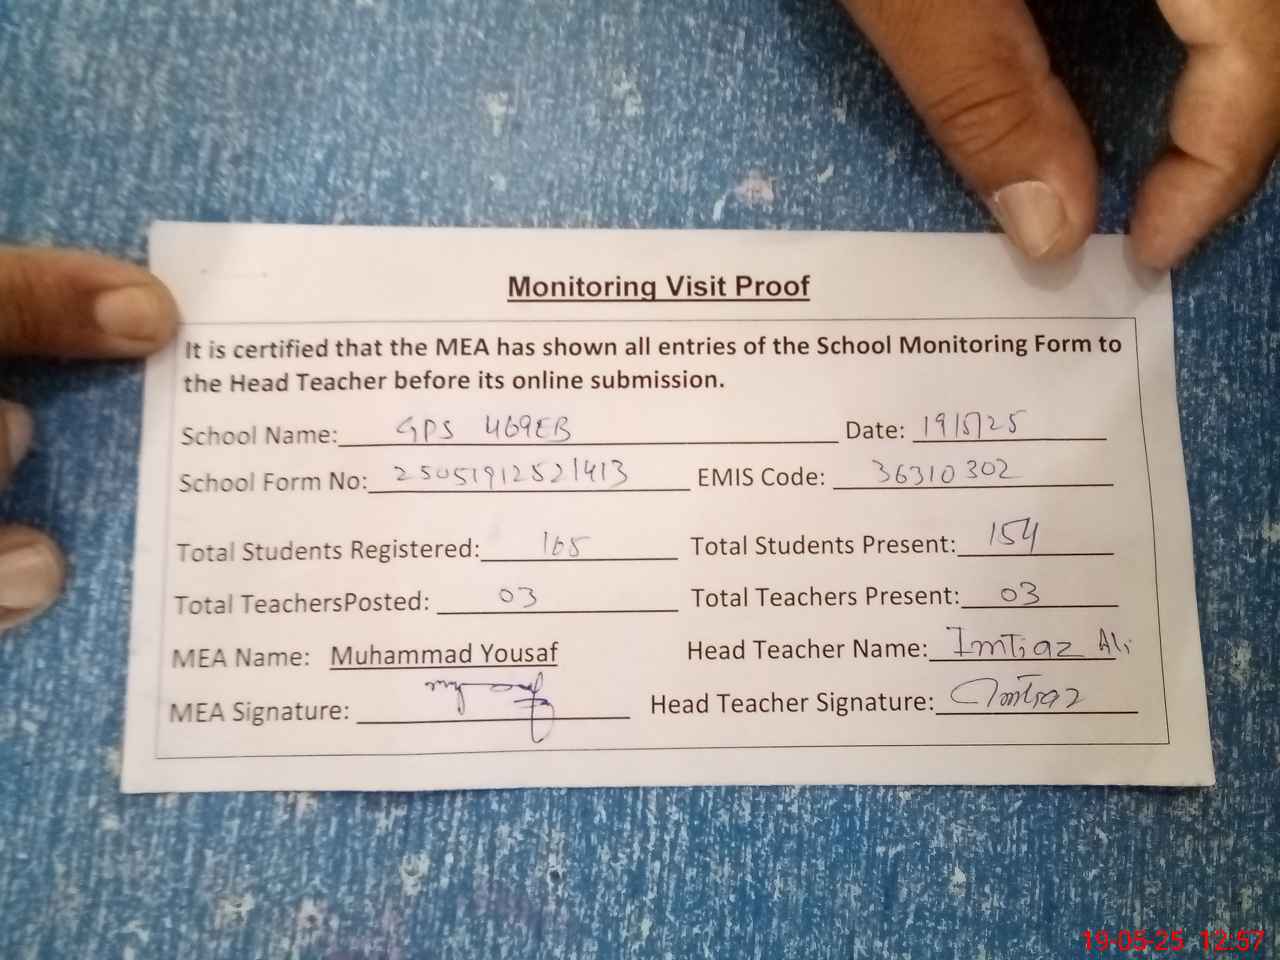 Monitoring Visit Proof
It is certified that the MEA has shown all entries of the School Monitoring Form to
the Head Teacher before its online submission.
School Name: GPS 469EB Date: 19/5/25
School Form No: 25051912521413 EMIS Code: 36310302
Total Students Registered: 165 Total Students Present: 154
Total TeachersPosted: 03 Total Teachers Present: 03
MEA Name: Muhammad Yousaf Head Teacher Name: Imtiaz Ali
MEA Signature: Head Teacher Signature: Imtiaz
19-05-25 12:57